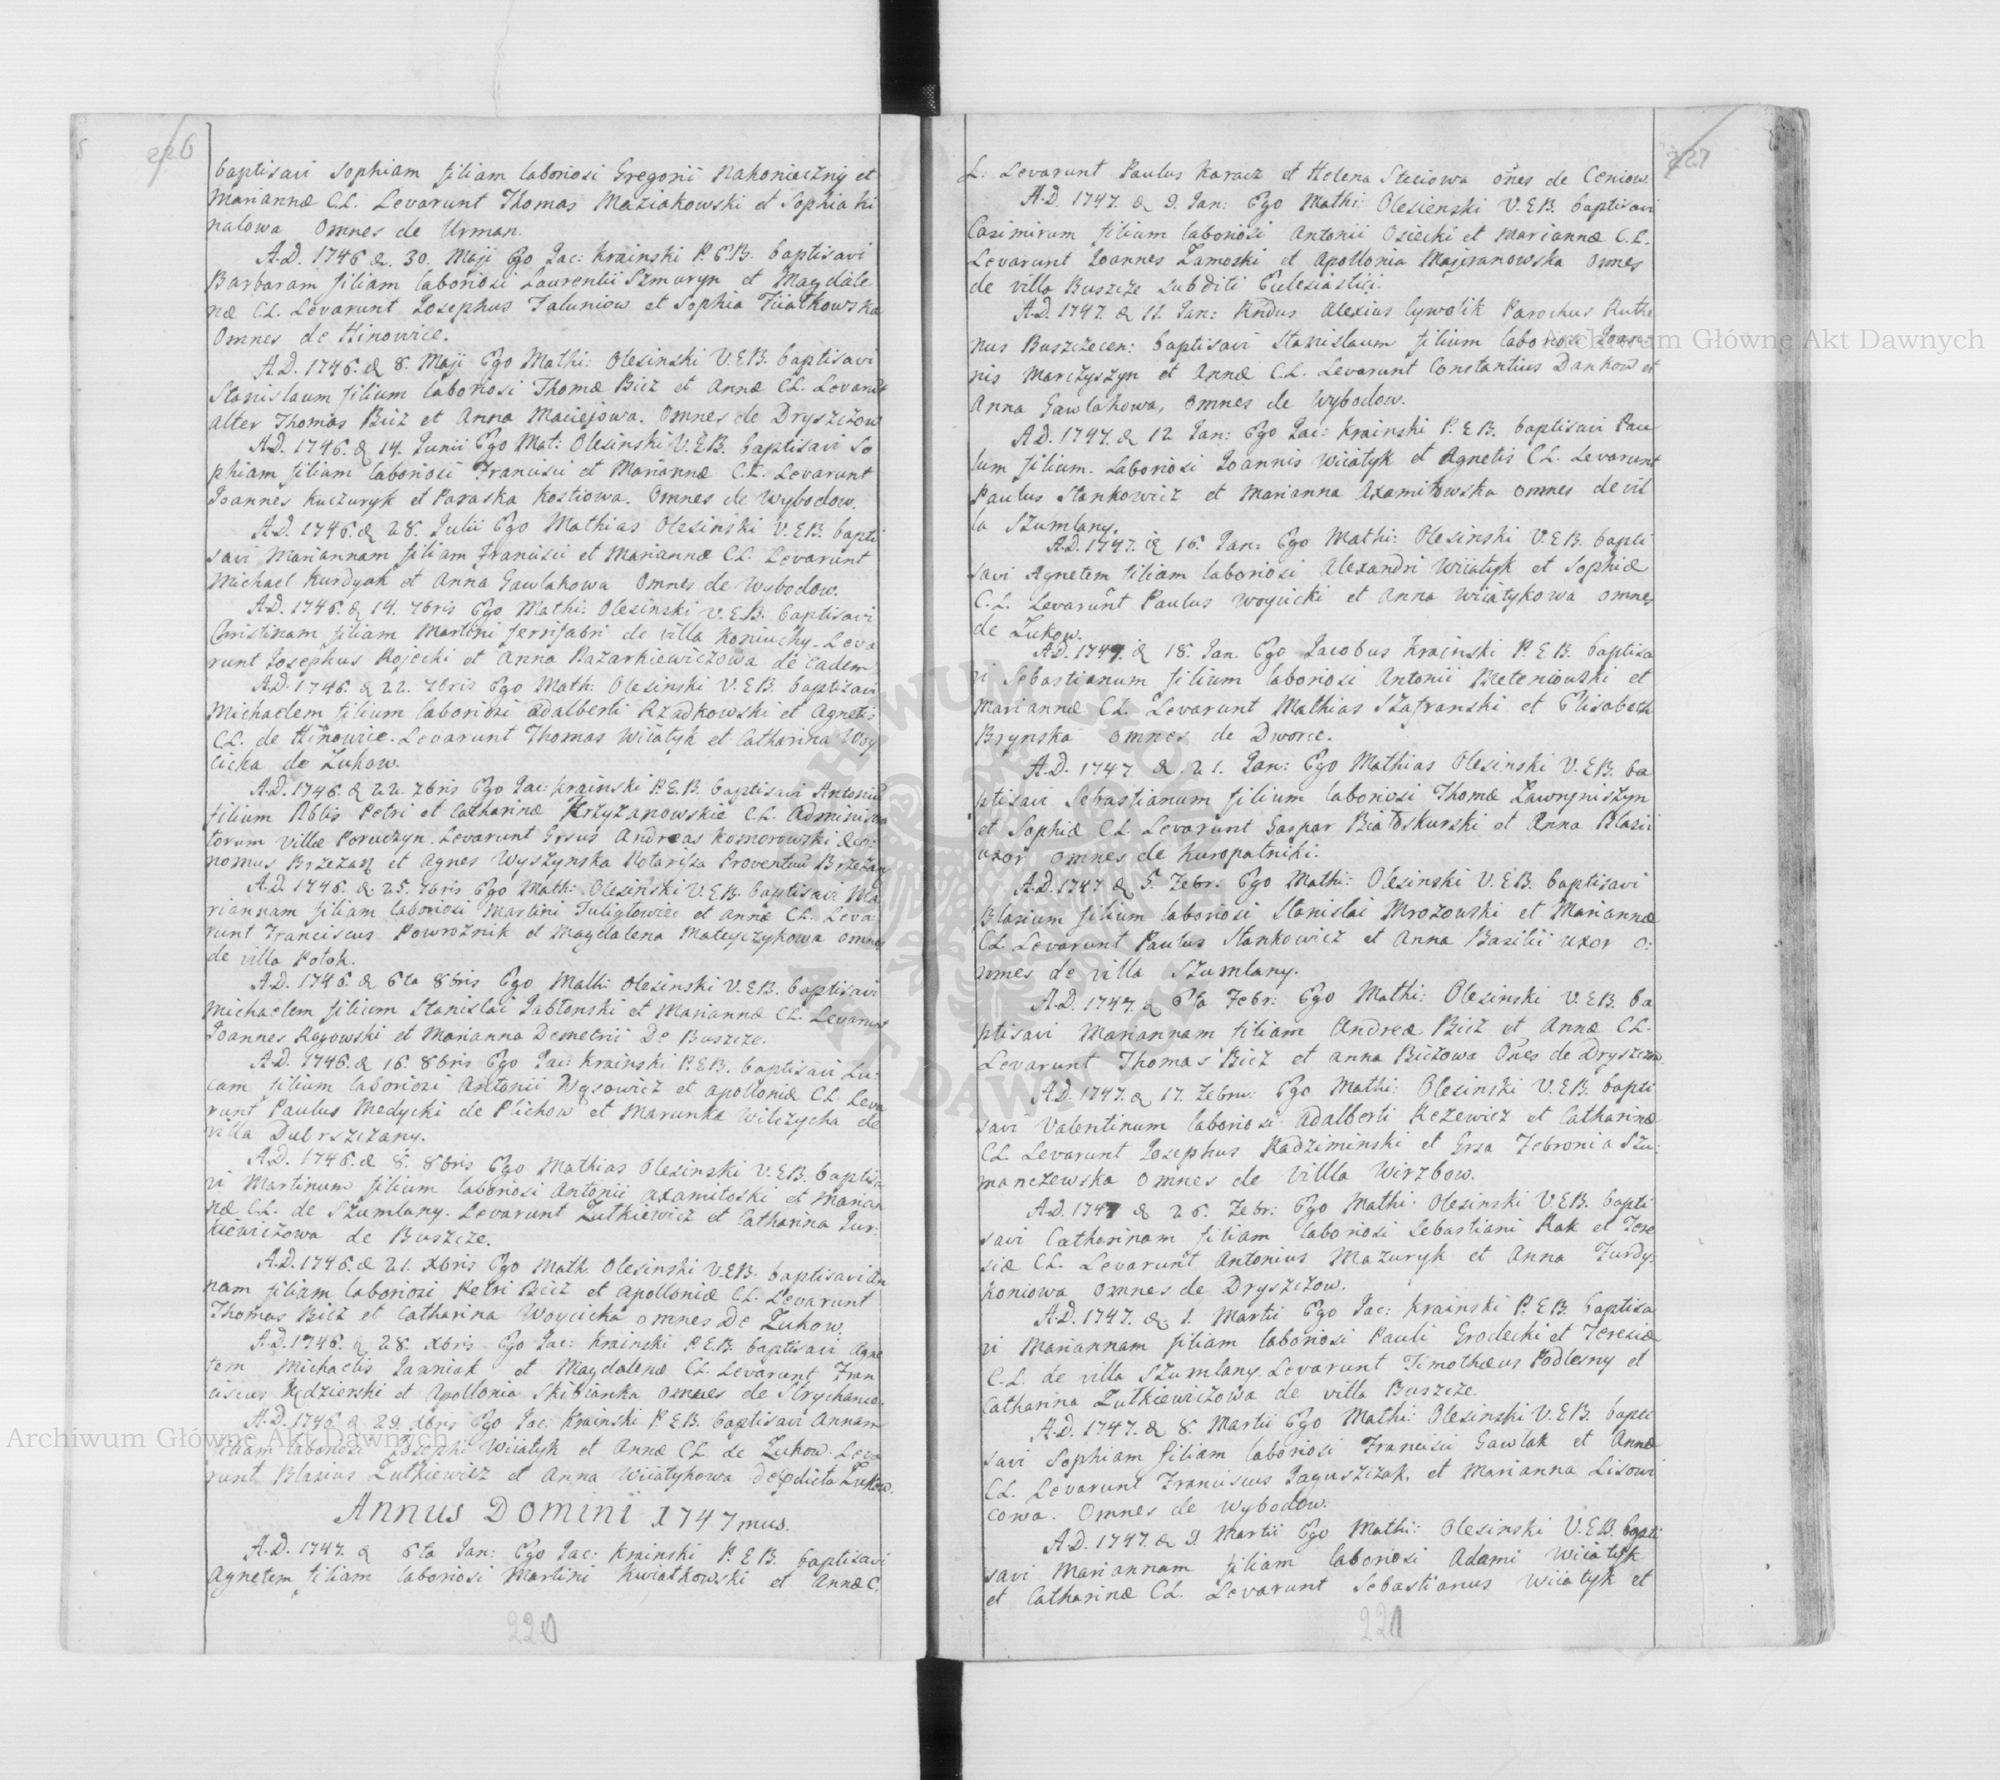 226
baptisavi Sophiam filiam laboriosi Gregorii Nakonieczny et
Mariannæ C.L. Levarunt Thomas Maziakowski et Sophia hi
nalowa Omnes de Urman.
A.D. 1746 d. 30. Maji Ego Jac: Krainski P.E.B. baptisavi
Barbaram filiam laboriosi Laurentii Szmuryn et Magdale
næ C.L. Levarunt Josephus Faluniow et Sophia Fiiałkowska
Omnes de Hinowice.
A.D. 1746. d 8. Maji Ego Mathi: Olesinski V.E.B. baptisavi
Stanislaum filium laboriosi Thomæ Bicz et Annæ C.L. Levarunt
alter Thomas Bicz et Anna Maciejowa. Omnes de Dryszczow
A.D. 1746. d 14. Junii Ego Mat: Olesinski V.E.B. baptisavi So
phiam filiam laboriosi Francisci et Mariannæ C.L. Levarunt
Joannes Kuczuryk et Paraska Kostiowa. Omnes de Wybodow.
A.D. 1746. d 28. Julii Ego Mathias Olesinski V.E.B. bapti
savi Mariannam filiam Francisci et Mariannæ C.L. Levarunt
Michael Kurdyak et Anna Gawlakowa Omnes de Wybodow.
A.D. 1746. d 14. 7bris Ego Mathi: Olesinski V.E.B. baptisavi
Christinam filiam Martini ferrifabri de villa Koniuchy. Leva
runt Josephus Rojecki et Anna Nazarkiewiczowa de eadem
A.D. 1746. d 22. 7bris Ego Math: Olesinski V.E.B. baptisavi
Michaelem filium laboriosi Adalberti Rzadkowski et Agnetis
C.L. de Hinowice. Levarunt Thomas Wiiatyk et Catharina Woy
cicka de Zukow.
A.D. 1746. d 22. 7bris Ego Jac: Krainski P.E.B. baptisavi Antoniũ
filium Nblis Petri et Catharinæ Krzyżanowskie C.L. Administra
torum villæ Poruczyn. Levarunt Grsus Andreas Komorowski Œco:
nomus Brzezan et Agnes Wyszynska Notarisza Proventuũ Brzezan
A.D. 1746. d. 25. 7bris Ego Math: Olesinski V.E.B. baptisavi Ma
riannam filiam laboriosi Martini Tuligłowiec et Annæ C.L. Leva:
runt Franciscus Powroznik et Magdalena Mateyczykowa omnes
de villa Potok.
A.D. 1746. d 6ta 8bris Ego Mathi Olesinski V.E.B. baptisavi
Michaelem filium Stanislai Jabłonski et Mariannæ C.L. Levarunt
Joannes Rogowski et Marianna Demetrii De Buszcze.
A.D. 1746. d 16. 8bris Ego Jac: Krainski P.E.B. baptisavi Lu:
cam filium laboriosi Antonii Wąsowicz et Apolloniæ C.L. Leva
runt Paulus Medycki de Plichow et Marunka Wilczycha de
villa Dubrszczany.
A.D. 1746. d 8. 8bris Ego Mathias Olesinski V.E.B. baptisa
vi Martinum filium laboriosi Antonii Axamitoski et Marian
næ C.L. de Szumlany. Levarunt Zutkiewicz et Catharina Jur:
kiewiczowa de Buszcze.
A.D. 1746. d 21. Xbris Ego Math. Olesinski V.E.B. baptisavi An
nam filiam laboriosi Petri Bicz et Apolloniæ C.L. Levarunt
Thomas Bicz et Catharina Woycicka omnes De Zukow.
A.D. 1746. d 28. Xbris Ego Jac: Krainski P.E.B. baptisavi Agne
tem Michaelis Janniak et Magdalenæ C.L. Levarunt Fran
ciscus Kędzierski et Apollonia Skibianka omnes de Strychance.
A.D. 1746 d 29 Xbris Ego Jac: Krainski P.E.B. baptisavi Annam
filiam laboriosi Josephi Wiiatyk et Annæ C.L. de Zukow. Leva
runt Blasius Zutkiewicz et Anna Wiiatykowa de predicta Zukow.
Annus Domini 1747mus.
A.D. 1747. d 6ta Jan: Ego Jac: Krainski P.E.B. baptisavi
Agnetem filiam laboriosi Martini Kwiatkowski et Annæ C.
220
227
L. Levarunt Paulus Karacz et Helena Steciowa oñes de Ceniow.
A.D. 1747. d 9. Jan: Ego Mathi: Olesienski V.E.B. baptisavi
Casimirum filium laboriosi Antonii Osiecki et Mariannæ C.L.
Levarunt Joannes Zamoski et Apollonia Majeranowska omnes
de villa Buszcze Subditi Ecclesiastici.
A.D. 1747. d 11. Jan: Rñdus Alexius Cywolik Parochus Ruthe
nus Buszczecen: baptisavi Stanislaum filium laboriosi Joan
nis Marczyszyn et Annæ C.L. Levarunt Constantius Dankow et
Anna Gawlakowa, omnes de Wybodow.
A.D. 1747. d 12 Jan: Ego Jac: Krainski P.E.B. baptisavi Pau
lum filium. Laboriosi Joannis Wiiatyk et Agnetis C.L. Levarunt
Paulus Stankowicz et Marianna Axamitowska omnes de vil
la Szumlany.
A.D. 1747. d 16. Jan: Ego Mathi: Olesinski V.E.B. bapti
savi Agnetem filiam laboriosi Alexandri Wiiatyk et Sophiæ
C.L. Levarunt Paulus Woycicki et Anna Wiiatykowa omnes
de Zukow.
A.D. 1747. d 18. Jan. Ego Jacobus Krainski P.E.B. baptisa
vi Sebastianum filium laboriosi Antonii Meteniowski et
Mariannæ C.L. Levarunt Mathias Szafranski et Elisabeth
Brynska omnes de Dworce.
A.D. 1747 d. 21. Jan: Ego Mathias Olesinski V.E.B. ba
ptisavi Sebastianum filium laboriosi Thomæ Ławryniszyn
et Sophiæ C.L. Levarunt Gaspar Białoskurski et Anna Blasii
uxor omnes de Kuropatniki.
A.D. 1747 d 5. Febr: Ego Mathi: Olesinski V.E.B. baptisavi
Blasium filium laboriosi Stanislai Mrozowski et Mariannæ
C.L. Levarunt Paulus Stankowicz et Anna Basilii uxor o:
mnes de villa Szumlany.
A.D. 1747. d 6ta Febr: Ego Mathi: Olesinski V.E.B. ba
ptisavi Mariannam filiam Andreæ Bicz et Annæ C.L.
Levarunt Thomas Bicz et Anna Biczowa Oñes de Dryszczow
A.D. 1747. d 17. Febru: Ego Mathi: Olesinski V.E.B. bapti
savi Valentinum laboriosi Adalberti Kczewicz et Catharinæ
C.L. Levarunt Josephus Radziminski et Grsa Febronia Szu:
manczewska omnes de villa Wirzbow.
A.D. 1747 d 26. Febr: Ego Mathi: Olesinski V.E.B. bapti
savi Catharinam filiam laboriosi Sebastiani Rak et Tere
siæ C.L. Levarunt Antonius Mazuryk et Anna Furdy:
koniowa omnes de Dryszczow.
A.D. 1747. d. 1. Martii Ego Jac: Krainski P.E.B. baptisa
vi Mariannam filiam laboriosi Pauli Grodecki et Teresiæ
C.L. de villa Szumlany. Levarunt Timothæus Podlesny et
Catharina Zutkiewiczowa de villa Buszcze.
A.D. 1747. d 8. Martii Ego Mathi: Olesinski V.E.B. bapti
savi Sophiam filiam laboriosi Francisci Gawlak et Annæ
C.L. Levarunt Franciscus Jaguszczak, et Marianna Lisowi
cowa. Omnes de Wybodow.
A.D. 1747. d 9 Martii Ego Mathi: Olesinski V.E.B. bapti
savi Mariannam filiam laboriosi Adami Wiiatyk
et Catharinæ C.L. Levarunt Sebastianus Wiiatyk et
221
Archiwum Główne Akt Dawnych
Archiwum Główne Akt Dawnych
ARCHIWUM GŁÓWNE AKT DAWNYCH